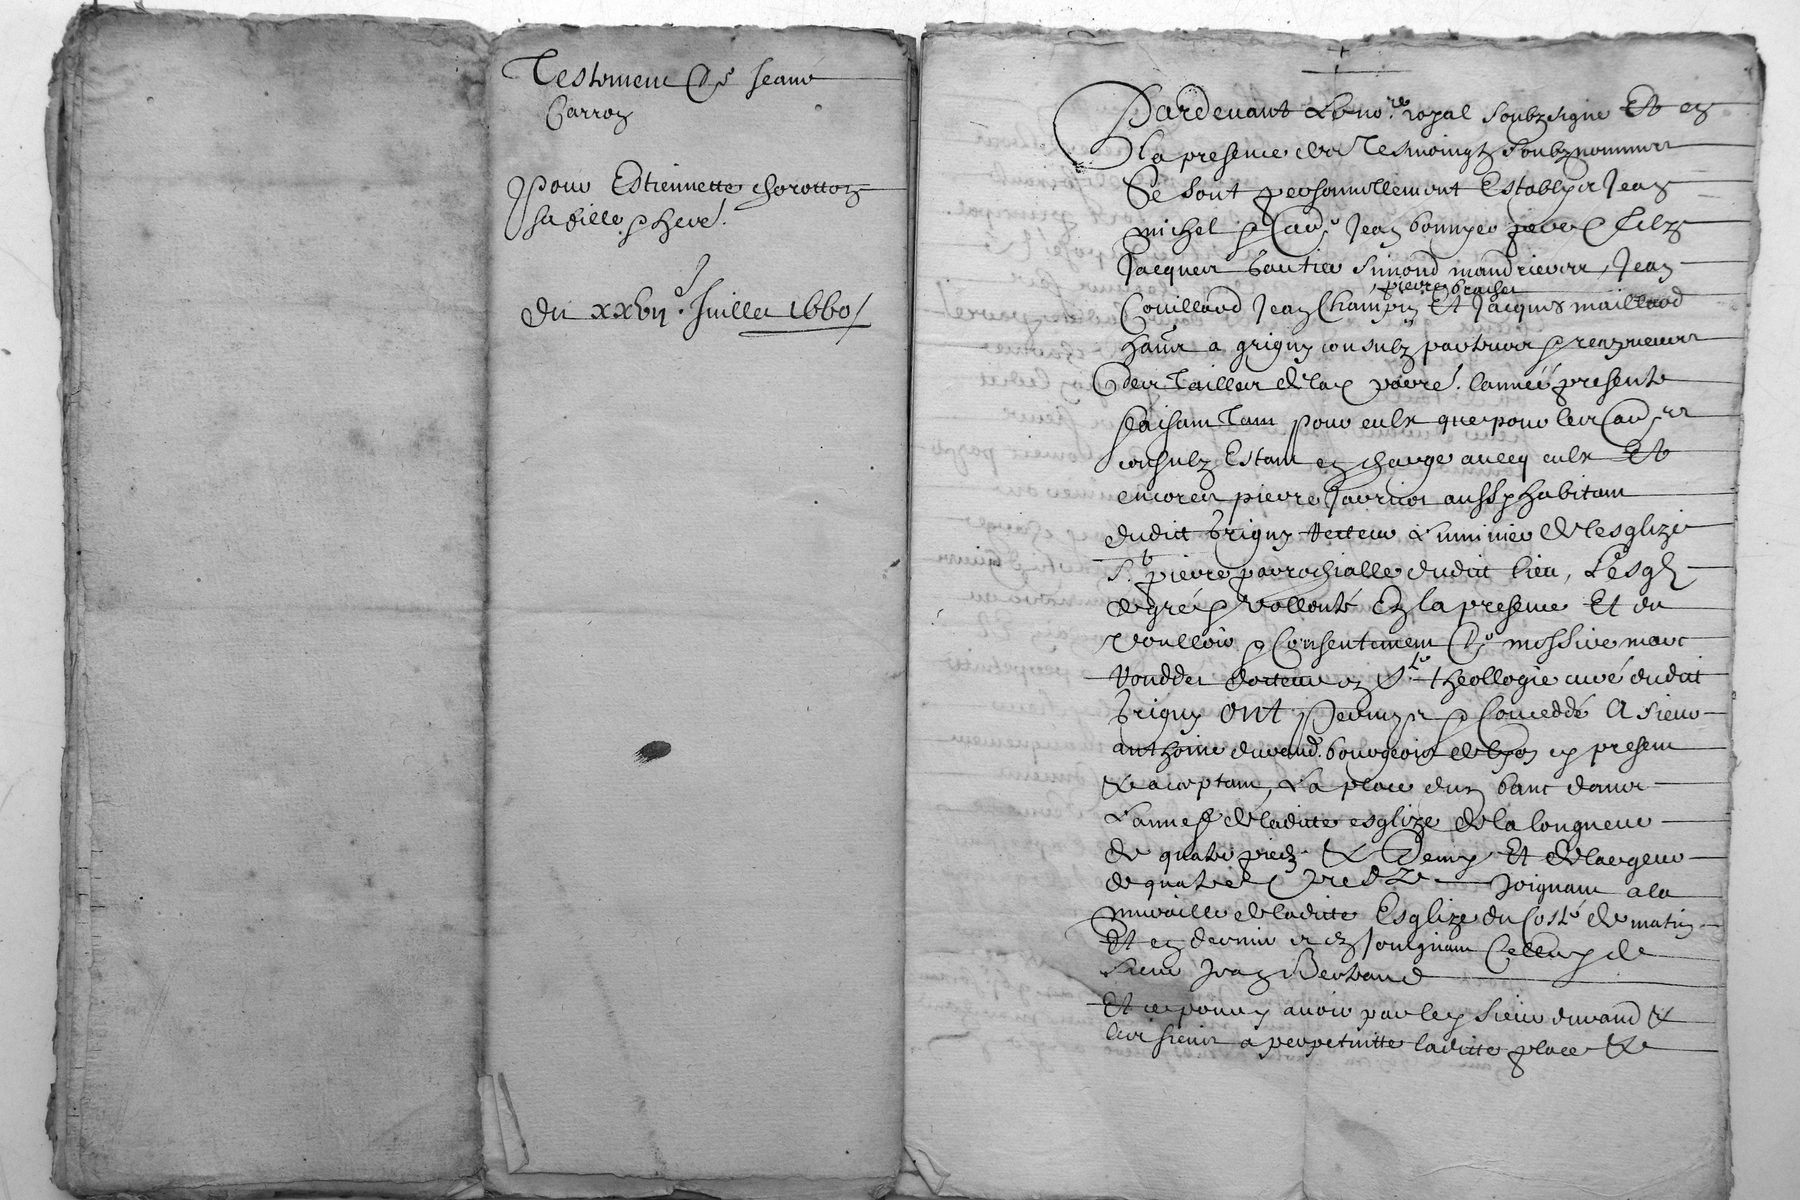 Testament de Jeanne
Carron
Pour Estiennette chorotton
sa fille &
du xxvii.e Juillet 1660
Pardevant Le no.re royal soubzsigne Et en
la presence des Tesmoingz soubznommes
Se sont personnellement Establys Jean
michel Jean bonnyer pere & filz
Jacques bautier Simond mandrieures, Jean
pierre brachet
Couillard Jean Champin Et Jacques maillard
a grigny consulz &
des Tailles de la parr.e lannee presente
faisant Tant pour eulx que pour les au.res
consulz Estant en charge avecq eulx Et
encores pierre aussy habitant
dudict Grigny Recteur Luminier de lesglize
S.t pierre parrochialle dudict lieu, Lesq.
de gré & vollonté En la presence Et du
voulloir & Consentement De messire marc
docteur en S.te theollogie curé dudict
Grigny ont Permys & Conceddé A sieur
anthoine durand bourgeois de lyon cy present
& acceptant, La place dun banc dans
de ladicte esglize de la longueur
de quatre piedz & Demy Et de largeur
de quatre Piedz Joignant a la
muraille de ladicte Esglize du Costé de matin
Et en Joignant Celluy de
Sieur Jean Bertrand
Et ce pour y avoir par ledict sieur durand &
les siens a perpetuitte ladicte place &